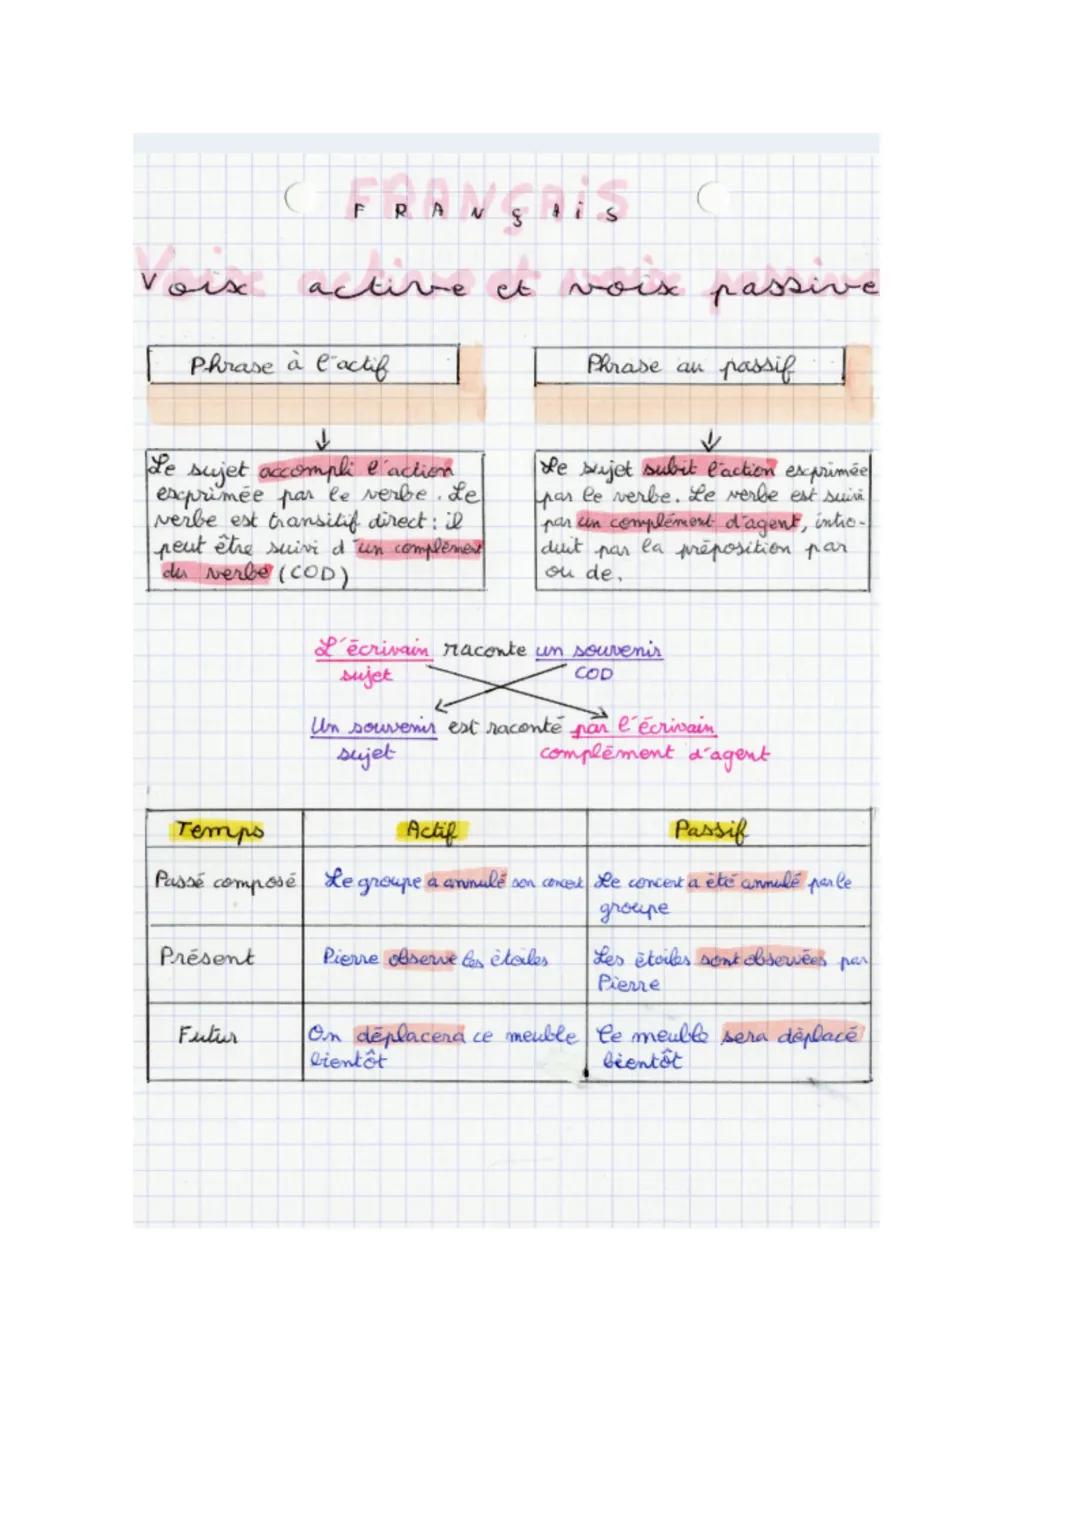 FRANÇAIS
FRANÇAIS
Voix active et voix passive
Voix active et voix passive
Phrase à l'actif
Phrase au passif
Le sujet accompli l'action
exprimée par le verbe. Le
verbe est transitif direct : il
peut être suivi d'un complément
du verbe (COD)
Le sujet subit l'action exprimée
par le verbe. Le verbe est suivi
par un complément d'agent, intro-
duit par la préposition par
ou de.
L'écrivain raconte un souvenir
sujet COD
Un souvenir est raconté par l'écrivain
sujet complément d'agent
Temps Actif Passif
Passé composé Le groupe a annulé son concert Le concert a été annulé par le
groupe
Présent Pierre observe les étoiles Les étoiles sont observées par
Pierre
Futur On déplacera ce meuble Ce meuble sera déplacé
bientôt bientôt